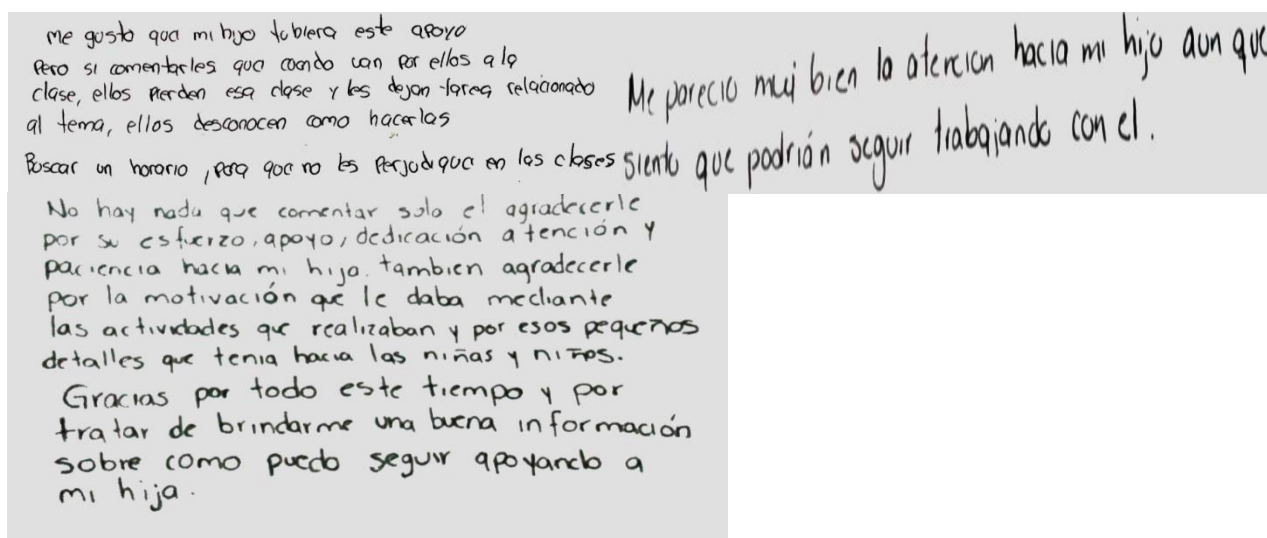 Me gusto que mi hijo tubiera este apoyo
Pero si comentarles que cuando van por ellos a la
clase, ellos pierden esa clase y les dejan tarea relacionado
al tema, ellos desconocen como hacerlas
Buscar un horario, para que no les perjudique en las clases
Me parecio muj bien la atencion hacia mi hijo aun que
siento que podrián seguir trabajando con el.
No hay nada que comentar solo el agradecerle
por su esfuerzo, apoyo, dedicación atención y
paciencia hacia mi hija. tambien agradecerle
por la motivación que le daba mediante
las actividades que realizaban y por esos pequeños
detalles que tenia hacia las niñas y niños.
Gracias por todo este tiempo y por
tratar de brindarme una buena información
sobre como puedo seguir apoyando a
mi hija.